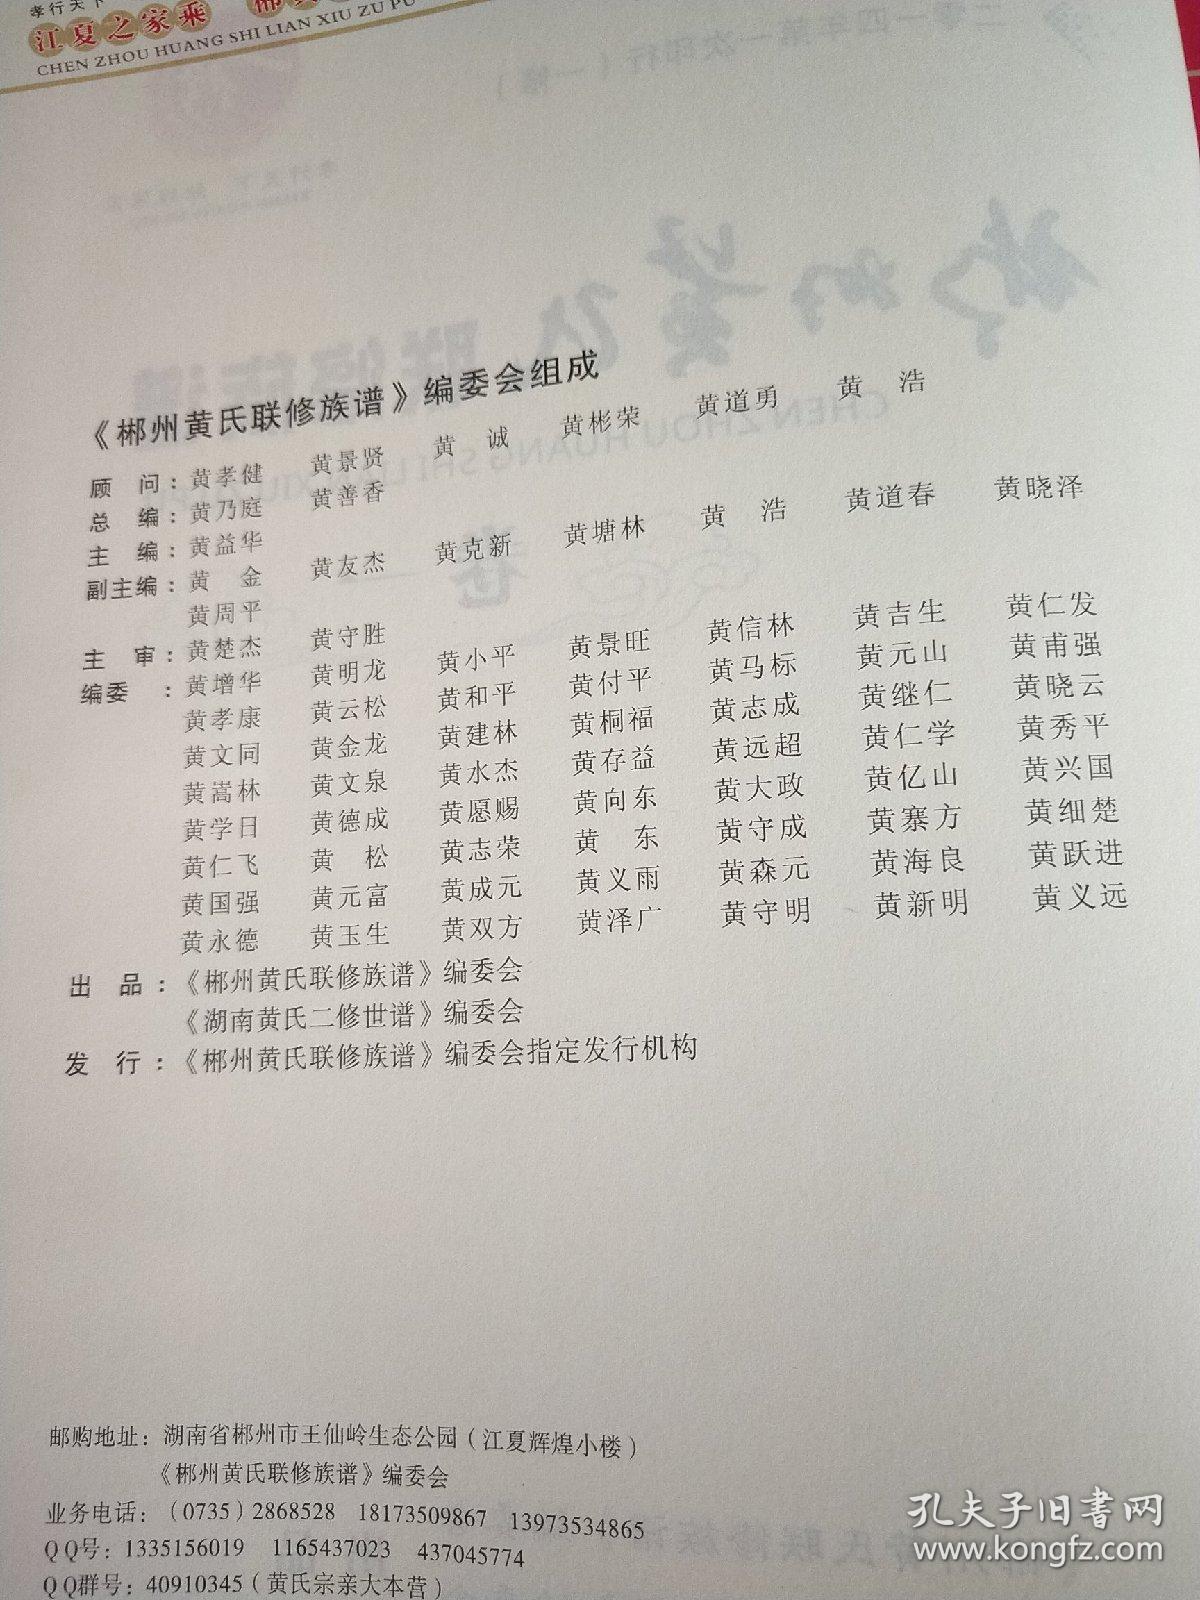 孝行天下
江夏之家乘
CHEN ZHOU HUANG SHI LIAN XIU ZU PU
《郴州黄氏联修族谱》编委会组成
顾 问：黄孝健 黄景贤 黄 诚 黄彬荣 黄道勇 黄 浩
总 编：黄乃庭 黄善香
主 编：黄益华
副主编：黄 金 黄友杰 黄克新 黄塘林 黄 浩 黄道春 黄晓泽
黄周平
主 审：黄楚杰 黄守胜
编委 ：黄增华 黄明龙 黄小平 黄景旺 黄信林 黄吉生 黄仁发
黄孝康 黄云松 黄和平 黄付平 黄马标 黄元山 黄甫强
黄文同 黄金龙 黄建林 黄桐福 黄志成 黄继仁 黄晓云
黄嵩林 黄文泉 黄水杰 黄存益 黄远超 黄仁学 黄秀平
黄学日 黄德成 黄愿赐 黄向东 黄大政 黄亿山 黄兴国
黄仁飞 黄 松 黄志荣 黄 东 黄守成 黄寨方 黄细楚
黄国强 黄元富 黄成元 黄义雨 黄森元 黄海良 黄跃进
黄永德 黄玉生 黄双方 黄泽广 黄守明 黄新明 黄义远
出 品：《郴州黄氏联修族谱》编委会
《湖南黄氏二修世谱》编委会
发 行：《郴州黄氏联修族谱》编委会指定发行机构
邮购地址：湖南省郴州市王仙岭生态公园（江夏辉煌小楼）
《郴州黄氏联修族谱》编委会
业务电话：（0735）2868528 18173509867 13973534865
QQ号：1335156019 1165437023 437045774
QQ群号：40910345（黄氏宗亲大本营）
孔夫子旧书网
www.kongfz.com